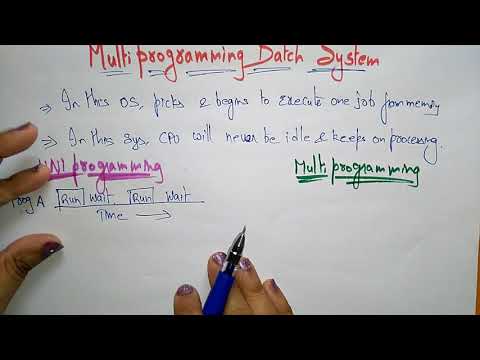 Multiprogramming Batch System
⇒ In this OS, picks & begins to execute one job from memory
⇒ In this Sys, CPU will never be idle & keeps on processing.
UNI programming Multi programming
Prog A Run Wait Run Wait
Time →